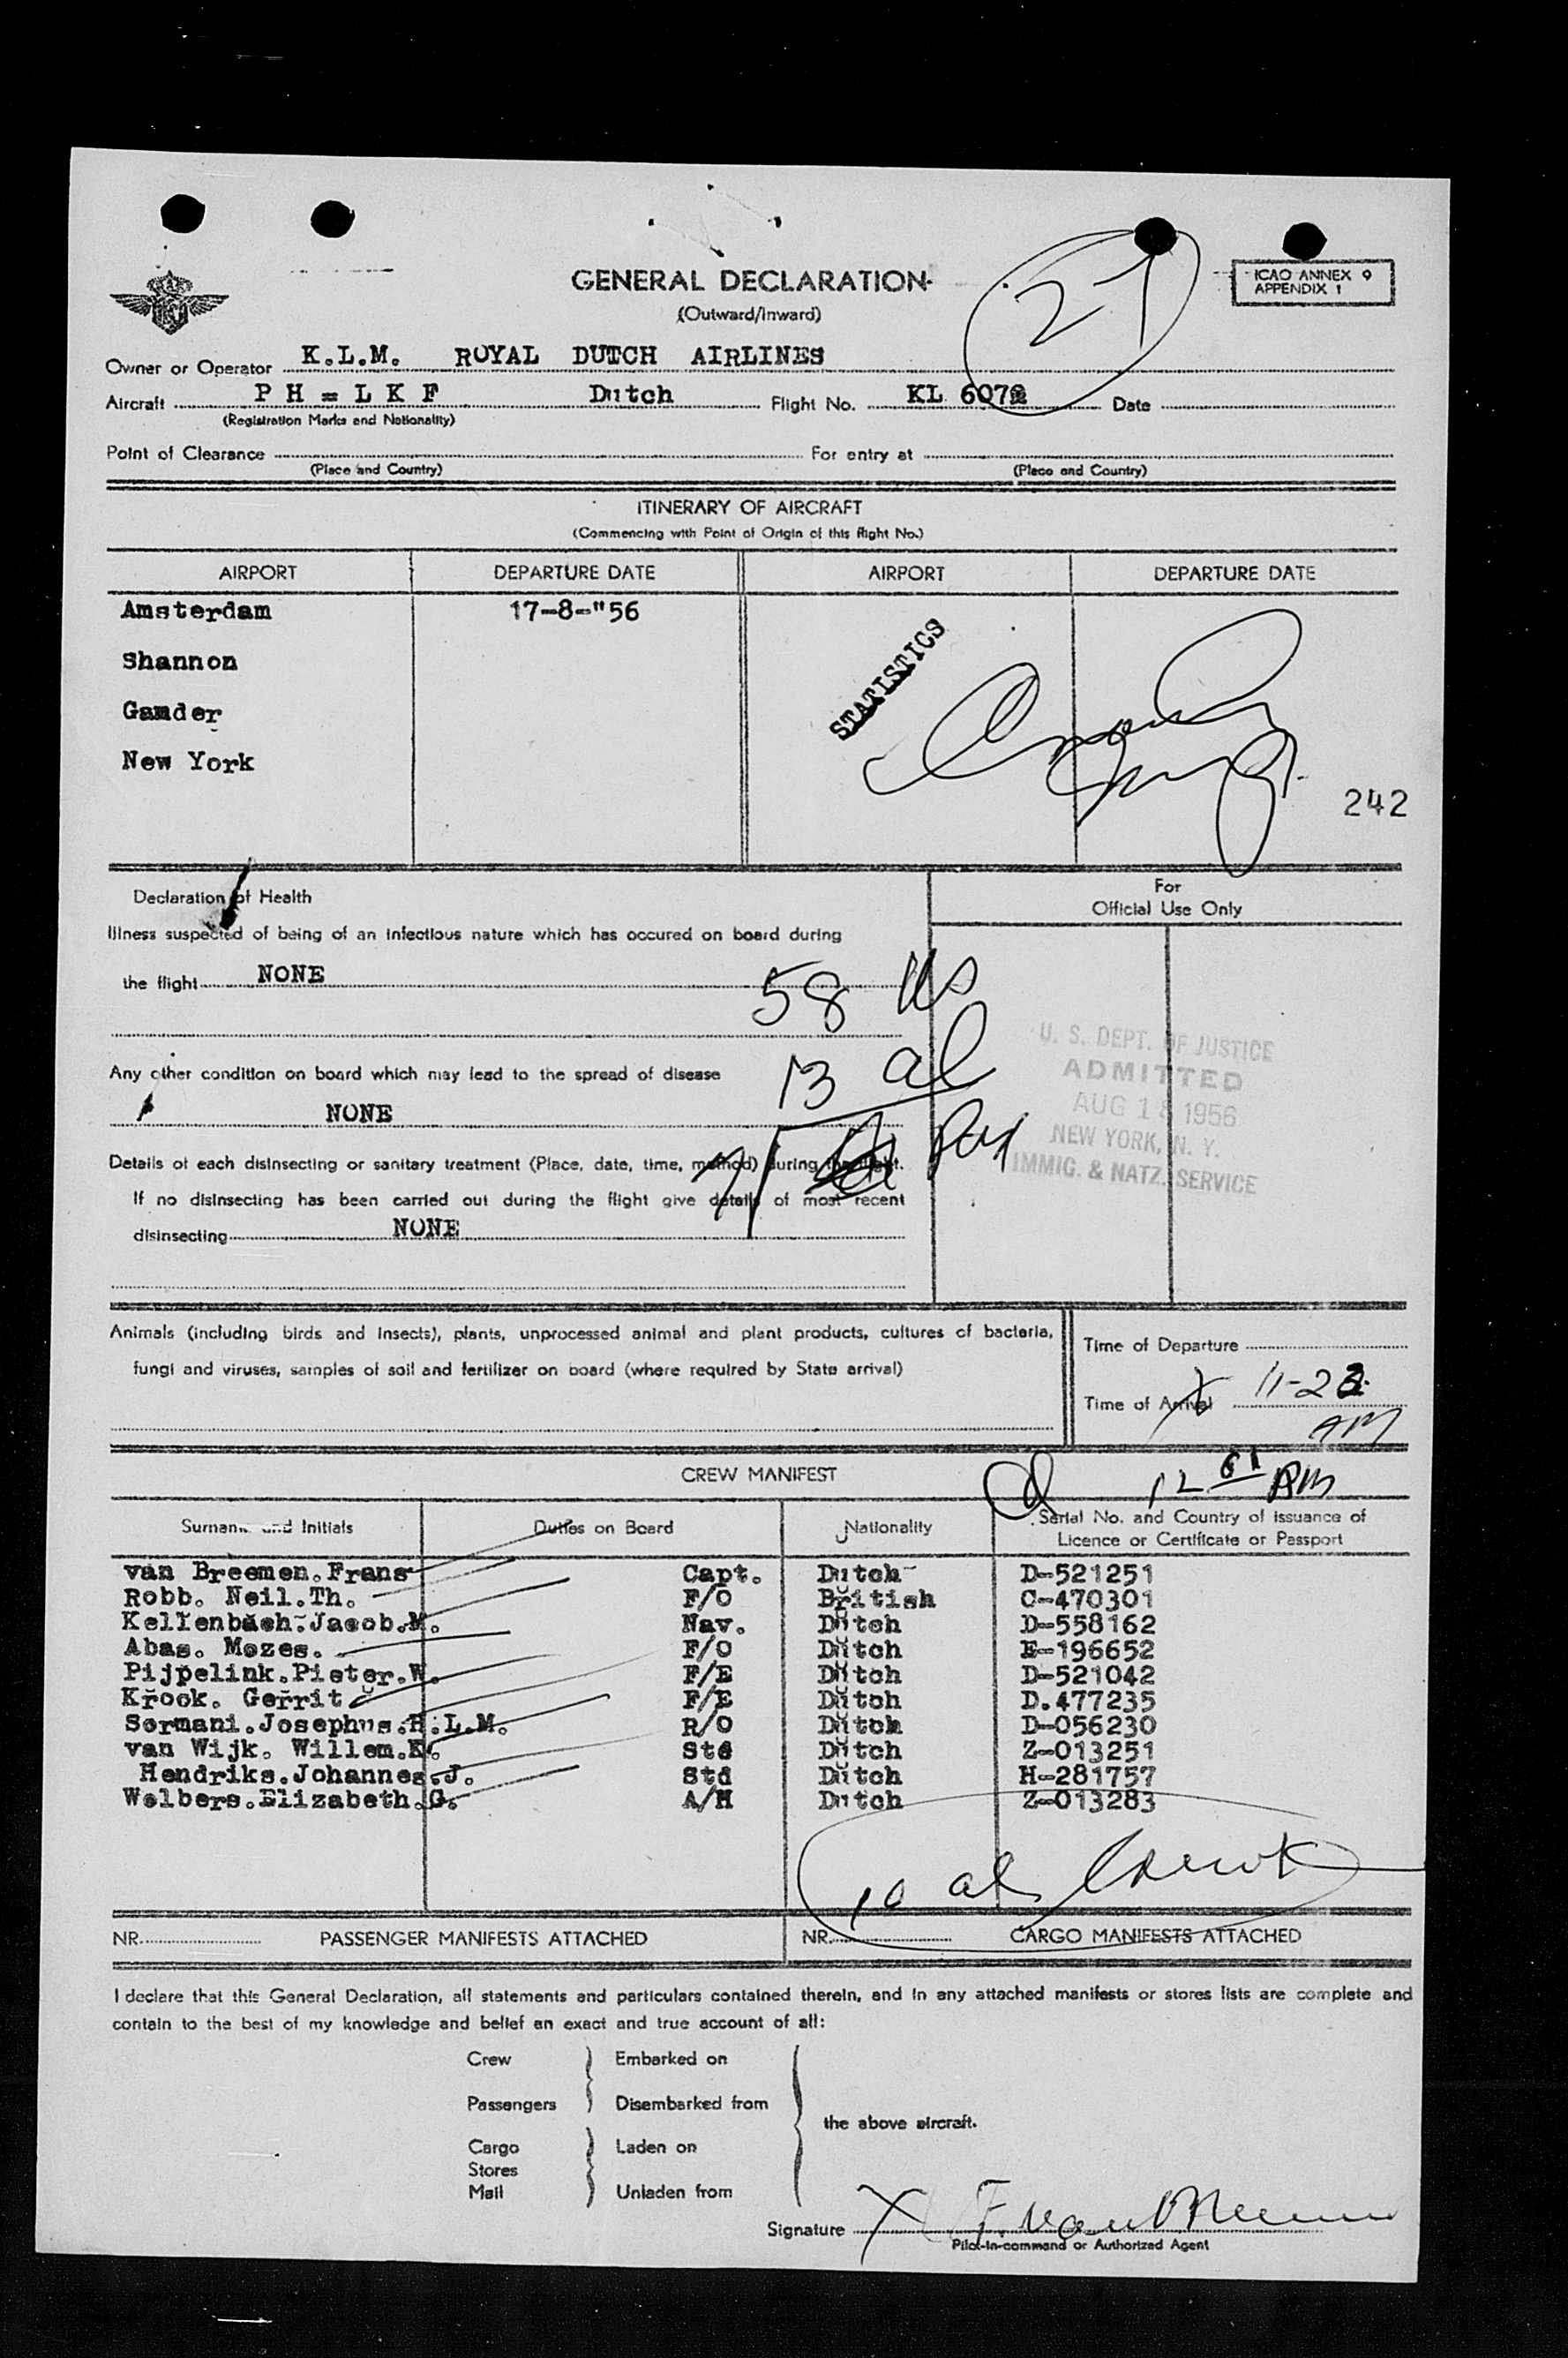 GENERAL DECLARATION
(Outward/Inward)
21
ICAO ANNEX 9
APPENDIX 1
Owner or Operator K.L.M. ROYAL DUTCH AIRLINES
Aircraft PH = LKF Dutch Flight No. KL 6072 Date
(Registration Marks and Nationality)
Point of Clearance For entry at
(Place and Country) (Place and Country)
ITINERARY OF AIRCRAFT
(Commencing with Point of Origin of this flight No.)
AIRPORT DEPARTURE DATE AIRPORT DEPARTURE DATE
Amsterdam 17-8-"56
STATISTICS
Shannon
Gander
New York
242
Declaration of Health
For
Official Use Only
Illness suspected of being of an infectious nature which has occured on board during
the flight NONE
58 us
Any other condition on board which may lead to the spread of disease
13 al
NONE
71 Pax
U. S. DEPT. OF JUSTICE
ADMITTED
AUG 18 1956
NEW YORK, N. Y.
IMMIG. & NATZ. SERVICE
Details of each disinsecting or sanitary treatment (Place, date, time, method) during the flight.
If no disinsecting has been carried out during the flight give details of most recent
disinsecting NONE
Animals (including birds and insects), plants, unprocessed animal and plant products, cultures of bacteria,
fungi and viruses, samples of soil and fertilizer on board (where required by State arrival)
Time of Departure
Time of Arrival 11-23
AM
CREW MANIFEST
12 01 PM
Surname and Initials Duties on Board Nationality Serial No. and Country of issuance of
Licence or Certificate or Passport
van Breemen.Frans Capt. Dutch D-521251
Robb. Neil.Th. F/O British C-470301
Kellenbach.Jacob.M. Nav. Dutch D-558162
Abas. Mozes. F/O Dutch E-196652
Pijpelink.Pieter.W. F/E Dutch D-521042
Krook. Gerrit F/E Dutch D.477235
Sormani.Josephus.H.L.M. R/O Dutch D-056230
van Wijk. Willem.K. Std Dutch Z-013251
Hendriks.Johannes.J. Std Dutch H-281757
Welbers.Elizabeth.G. A/H Dutch Z-013283
10 al Crew
NR. PASSENGER MANIFESTS ATTACHED NR. CARGO MANIFESTS ATTACHED
I declare that this General Declaration, all statements and particulars contained therein, and in any attached manifests or stores lists are complete and
contain to the best of my knowledge and belief an exact and true account of all:
Crew Embarked on
Passengers Disembarked from
the above aircraft.
Cargo Laden on
Stores
Mail Unladen from
Signature X F. van Breemen
Pilot-in-command or Authorized Agent